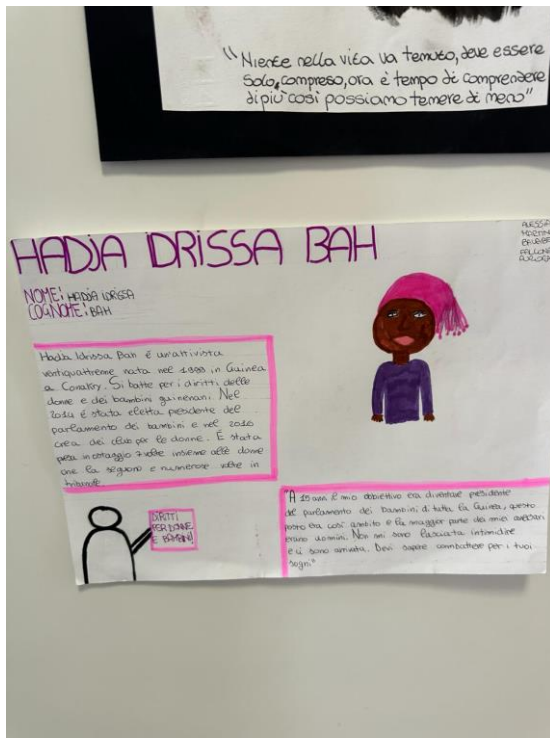 "Niente nella vita va temuto, deve essere
solo, compreso, ora è tempo di comprendere
di più così possiamo temere di meno"
HADJA IDRISSA BAH
NOME: HADJA IDRISSA
COGNOME: BAH
Hadja Idrissa Bah é un'attivista
ventiquattrenne nata nel 1999 in Guinea
a Conakry. Si batte per i diritti delle
donne e dei bambini guineani. Nel
é stata eletta presidente del
parlamento dei bambini e nel
crea dei club per le donne. É stata
presa in ostaggio 7 volte insieme alle donne
che la seguono e numerose volte in
tribunale.
DIRITTI
PER DONNE
E BAMBINI
"A 15 anni il mio obbiettivo era diventare presidente
del parlamento dei bambini di tutta la Guinea, questo
posto era così ambito e la maggior parte dei miei avversari
erano uomini. Non mi sono lasciata intimidire
e ci sono arrivata. Devi sapere combattere per i tuoi
sogni."